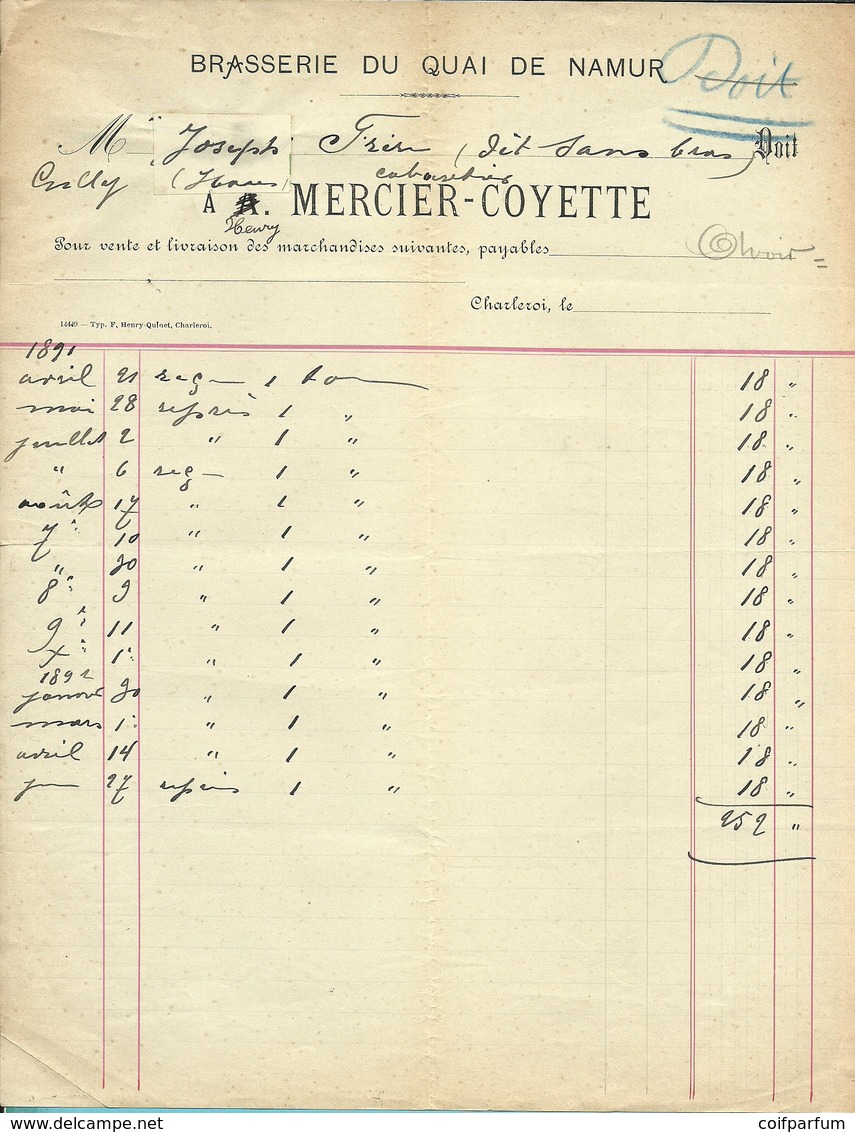 BRASSERIE DU QUAI DE NAMUR
Doit
Mr Joseph Frère (dit Sans bras) Doit
(Haies) cabaretier
A MERCIER-COYETTE
Henry
Pour vente et livraison des marchandises suivantes, payables
Charleroi, le
14449 — Typ. F. Henry-Quinet, Charleroi.
1891
avril 21 reç 1 ton 18 "
mai 28 repris 1 " 18 "
juillet 2 " 1 " 18 "
" 6 reç 1 " 18 "
août 17 " 1 " 18 "
7e 10 " 1 " 18 "
" 30 " 1 " 18 "
8e 9 " 1 " 18 "
9e 11 " 1 " 18 "
Xe 1r " 1 " 18 "
1892
janvier 30 " 1 " 18 "
mars 1r " 1 " 18 "
avril 14 " 1 " 18 "
juin 27 repris 1 " 18 "
252 "
delcampe.net
coifparfum